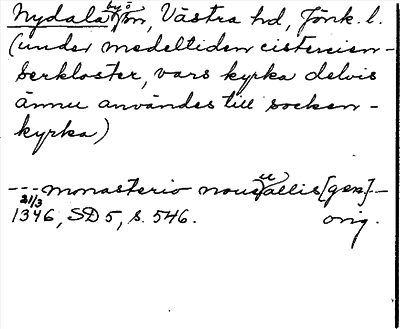 Nydala byö sn, Västra hd, Jönk. l.
(under medeltiden cistercien-
serkloster, vars kyrka delvis
ännu användes till socken-
kyrka)
--- monasterio noue uallis [gen.] --
21/3 1346, SD 5, s. 546. orig.